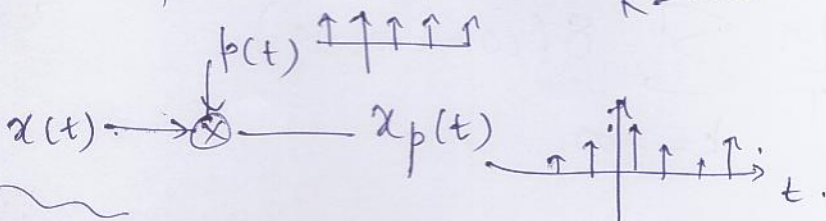 p(t)
x(t)
x_p(t)
t.